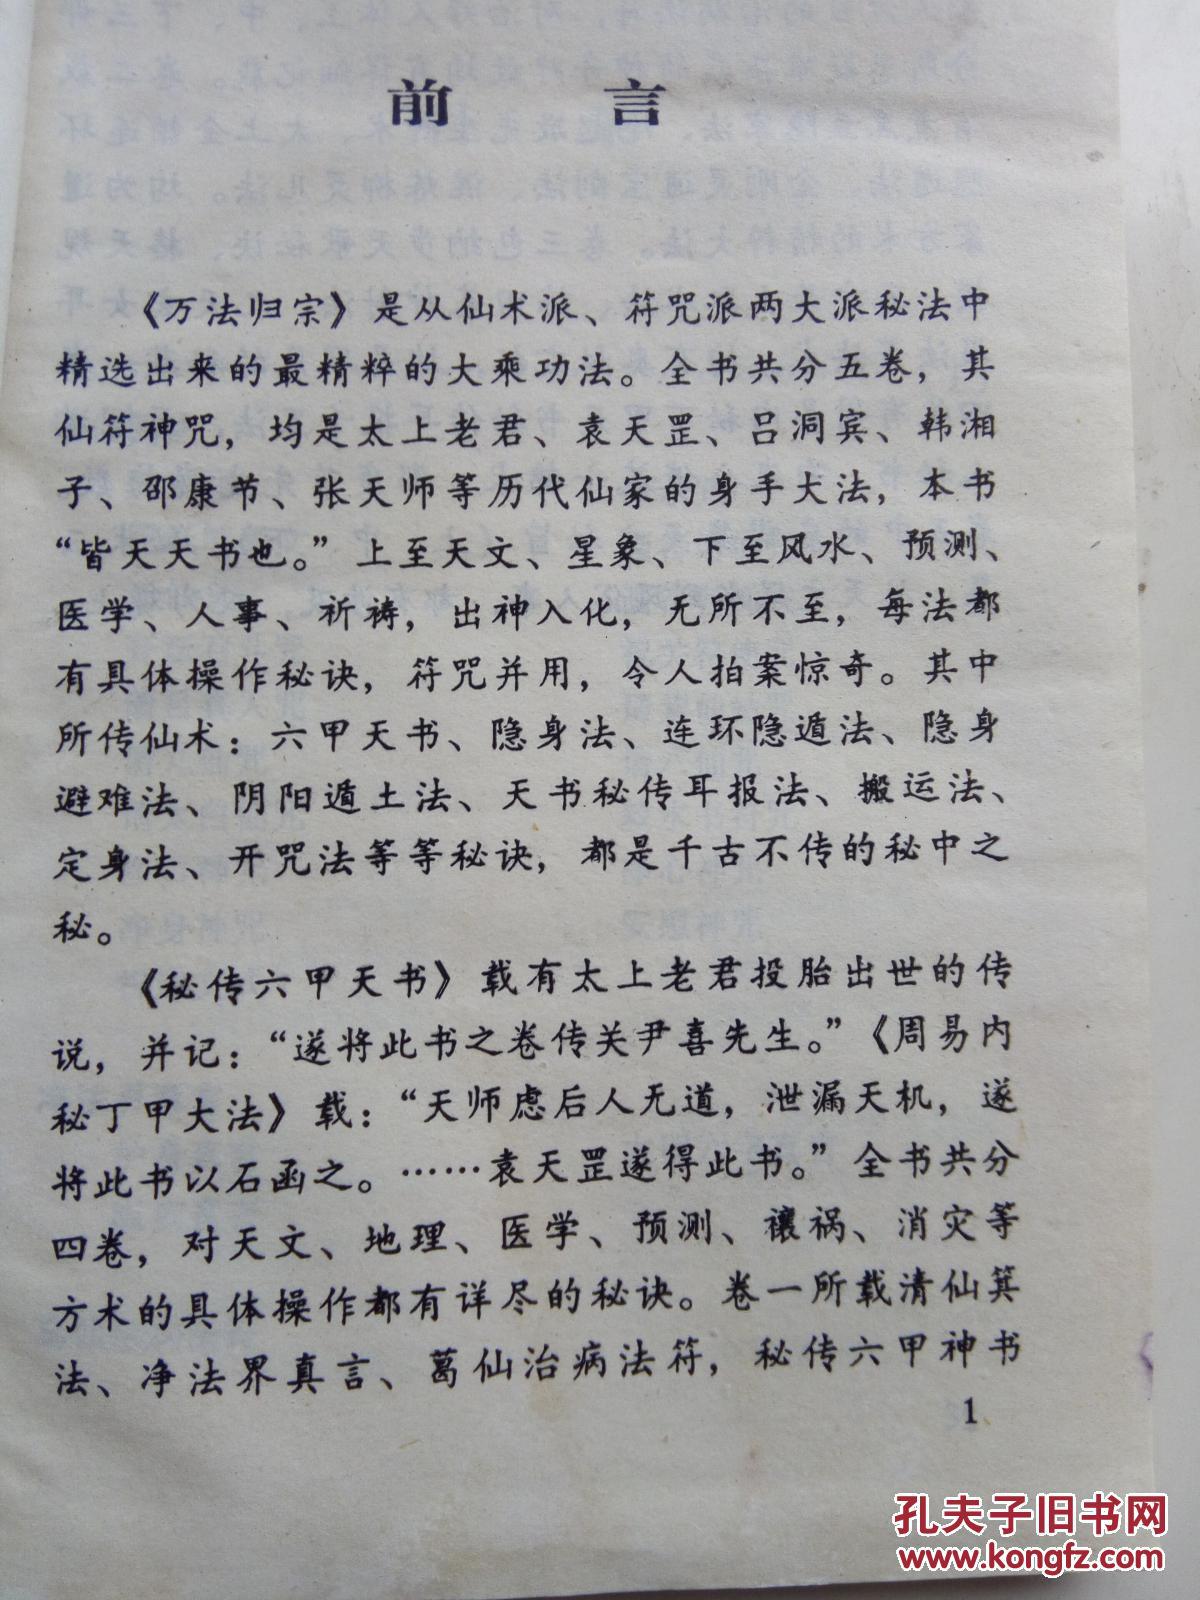 前言
《万法归宗》是从仙术派、符咒派两大派秘法中
精选出来的最精粹的大乘功法。全书共分五卷，其
仙符神咒，均是太上老君、袁天罡、吕洞宾、韩湘
子、邵康节、张天师等历代仙家的身手大法，本书
“皆天天书也。”上至天文、星象、下至风水、预测、
医学、人事、祈祷，出神入化，无所不至，每法都
有具体操作秘诀，符咒并用，令人拍案惊奇。其中
所传仙术：六甲天书、隐身法、连环隐遁法、隐身
避难法、阴阳遁土法、天书秘传耳报法、搬运法、
定身法、开咒法等等秘诀，都是千古不传的秘中之
秘。
《秘传六甲天书》载有太上老君投胎出世的传
说，并记：“遂将此书之卷传关尹喜先生。”《周易内
秘丁甲大法》载：“天师虑后人无道，泄漏天机，遂
将此书以石函之。……袁天罡遂得此书。”全书共分
四卷，对天文、地理、医学、预测、禳祸、消灾等
方术的具体操作都有详尽的秘诀。卷一所载清仙箕
法、净法界真言、葛仙治病法符，秘传六甲神书
1
孔夫子旧书网
www.kongfz.com